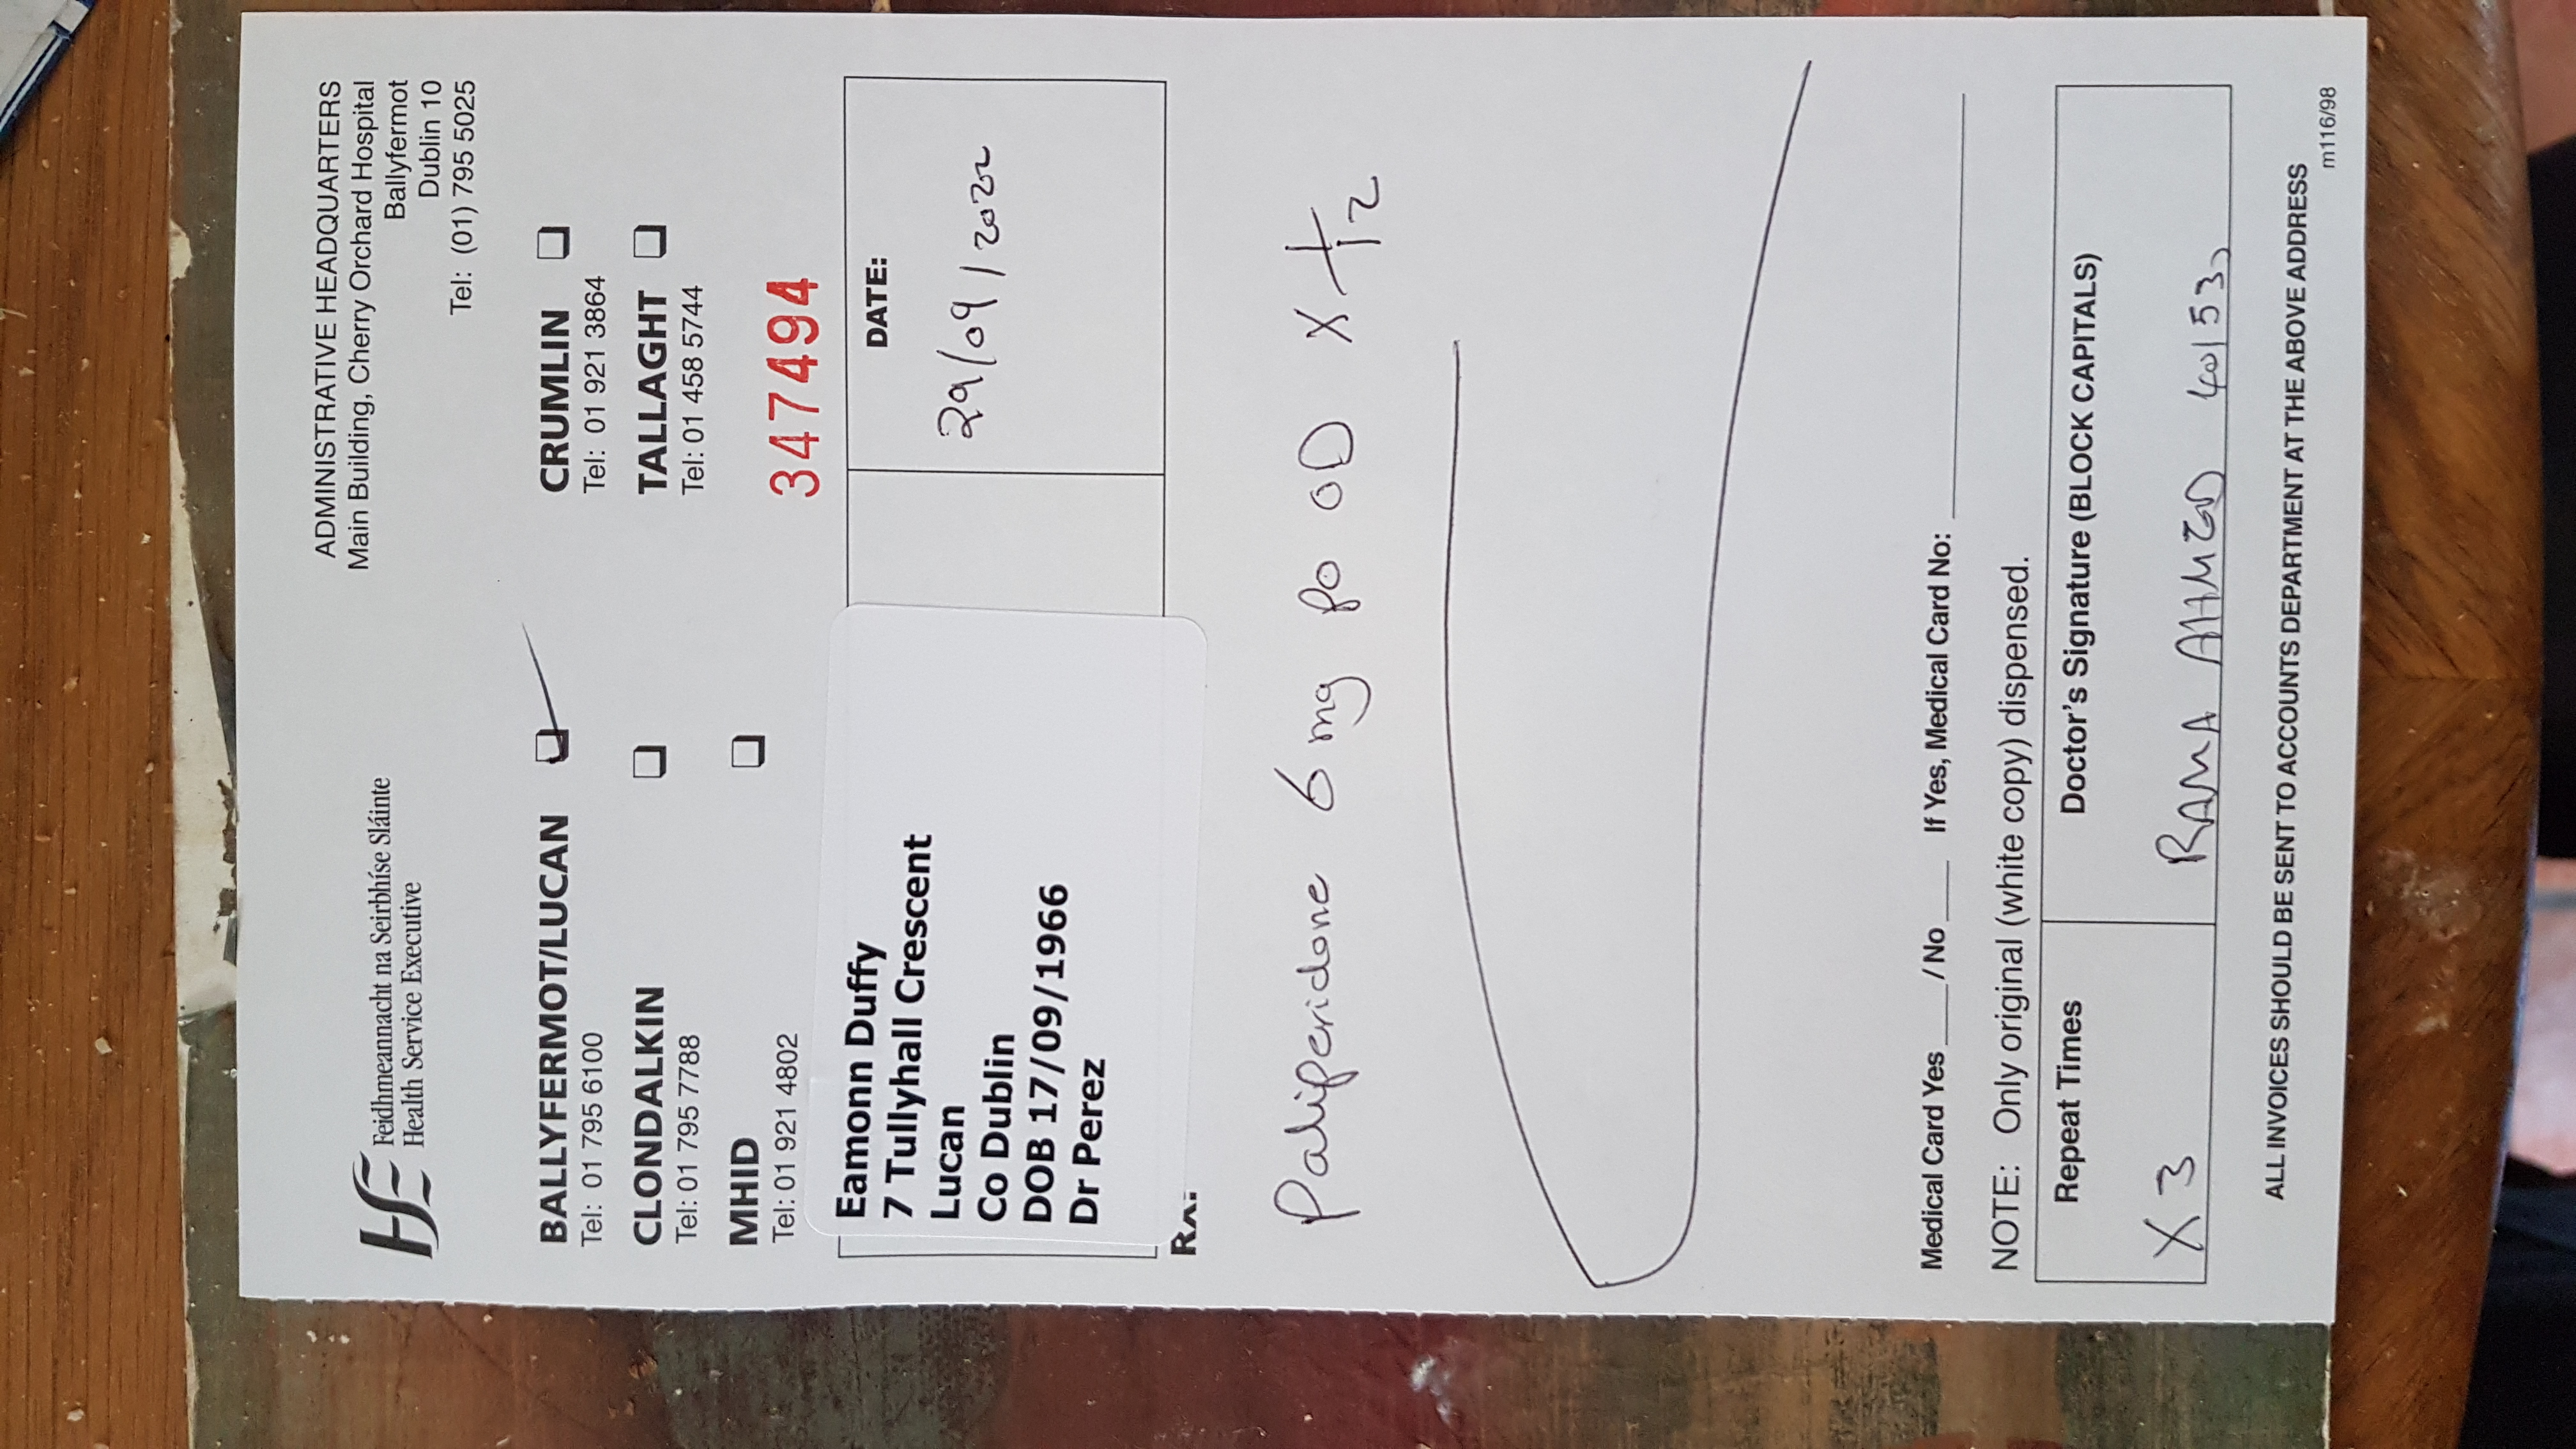 Feidhmeannacht na Seirbhíse Sláinte
Health Service Executive
ADMINISTRATIVE HEADQUARTERS
Main Building, Cherry Orchard Hospital
Ballyfermot
Dublin 10
Tel: (01) 795 5025
BALLYFERMOT/LUCAN
Tel: 01 795 6100
CRUMLIN
Tel: 01 921 3864
CLONDALKIN
Tel: 01 795 7788
TALLAGHT
Tel: 01 458 5744
MHID
Tel: 01 921 4802
347494
Eamonn Duffy
7 Tullyhall Crescent
Lucan
Co Dublin
DOB 17/09/1966
Dr Perez
DATE:
29/09/2022
Rx:
Paliperidone 6mg po OD X 1/12
Medical Card Yes ____ / No ____ If Yes, Medical Card No: ____
NOTE: Only original (white copy) dispensed.
Repeat Times
X 3
Doctor's Signature (BLOCK CAPITALS)
RAMA AHMED
ALL INVOICES SHOULD BE SENT TO ACCOUNTS DEPARTMENT AT THE ABOVE ADDRESS
m116/98